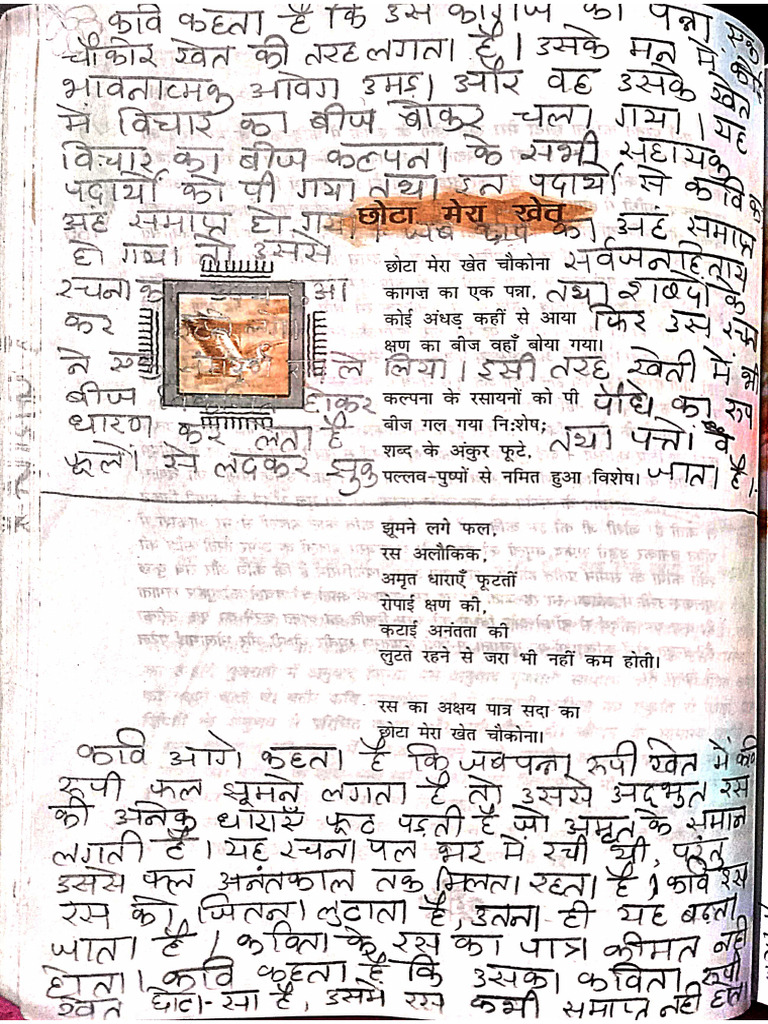 कवि कहता है कि उस कागज का पन्ना एक
चौकोर खेत की तरह लगता है। उसके मन में कोई
भावनात्मक आवेग उमड़ा और वह उसके खेत
में विचार का बीज बोकर चला गया। यह
विचार का बीज कल्पना के सभी सहायक
पदार्थों को पी गया तथा इन पदार्थों से कवि का
अहं समाप्त हो गया। जब कवि का अहं समाप्त
छोटा मेरा खेत
हो गया तो उससे सर्वजनहिताय
छोटा मेरा खेत चौकोना
रचना के आ तथा शब्दों के
कागज़ का एक पन्ना,
कर फिर उस रचना
कोई अंधड़ कहीं से आया
क्षण का बीज वहाँ बोया गया।
ने ले लिया। इसी तरह खेती में भी
बीज होकर पौधे का रूप
कल्पना के रसायनों को पी
धारण कर लेता है तथा पत्तों व
बीज गल गया नि:शेष;
शब्द के अंकुर फूटे,
फूलों से लदकर झुक जाता है।
पल्लव-पुष्पों से नमित हुआ विशेष।
झूमने लगे फल,
रस अलौकिक,
अमृत धाराएँ फूटतीं
रोपाई क्षण की,
कटाई अनंतता की
लुटते रहने से जरा भी नहीं कम होती।
रस का अक्षय पात्र सदा का
छोटा मेरा खेत चौकोना।
कवि आगे कहता है कि जब पन्ना रूपी खेत में कवि
रूपी फल झूमने लगता है तो उससे अद्भुत रस
की अनेक धाराएँ फूट पड़ती है जो अमृत के समान
लगती है। यह रचना पल भर में रची थी, परंतु
उससे फल अनंतकाल तक मिलता रहता है। कवि इस
रस को जितना लुटाता है, उतना ही यह बढ़ता
जाता है। कविता के रस का पात्र कीमत नही
होता। कवि कहता है कि उसका कविता रूपी
खेत छोटा-सा है, उसमे रस कभी समाप्त नही होता।